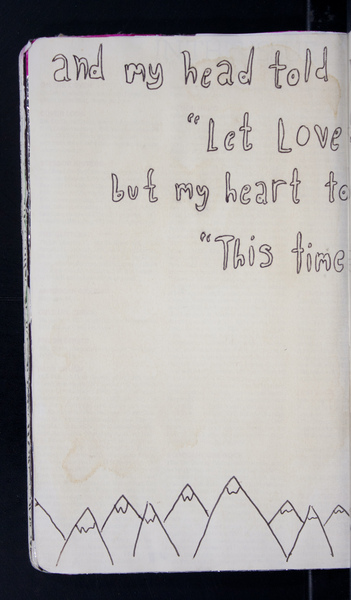 and my head told
“Let Love
but my heart to
“This time